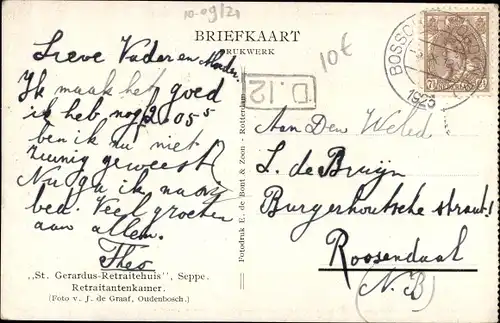 10-09/21
BRIEFKAART
DRUKWERK
10€
BOSSCH
1925
7½ NEDERLAND
D.12
Lieve Vader en Moeder.
Ik maak het goed
ik heb nog f2.05⁵
ben ik nu niet
zuinig geweest?
Nu ga ik naar
bed. Veel groeten
aan allen.
Theo
„St. Gerardus-Retraitehuis”, Seppe.
Retraitantenkamer.
(Foto v. J. de Graaf, Oudenbosch.)
Fotodruk E. de Bont & Zoon - Rotterdam
Aan Den Weled.
L. de Bruijn
Burgerhoutsche straat!
Roosendaal
(N.B)